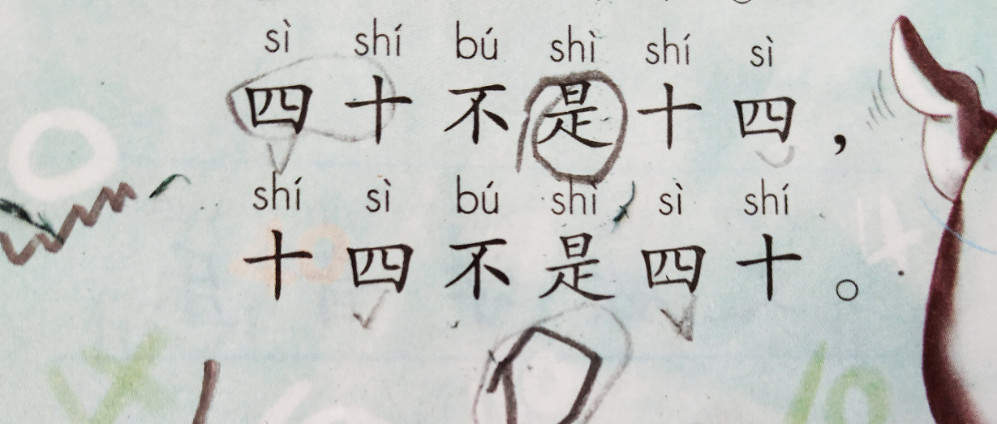 sì shí bú shì shí sì
四十不是十四，
shí sì bú shì sì shí
十四不是四十。